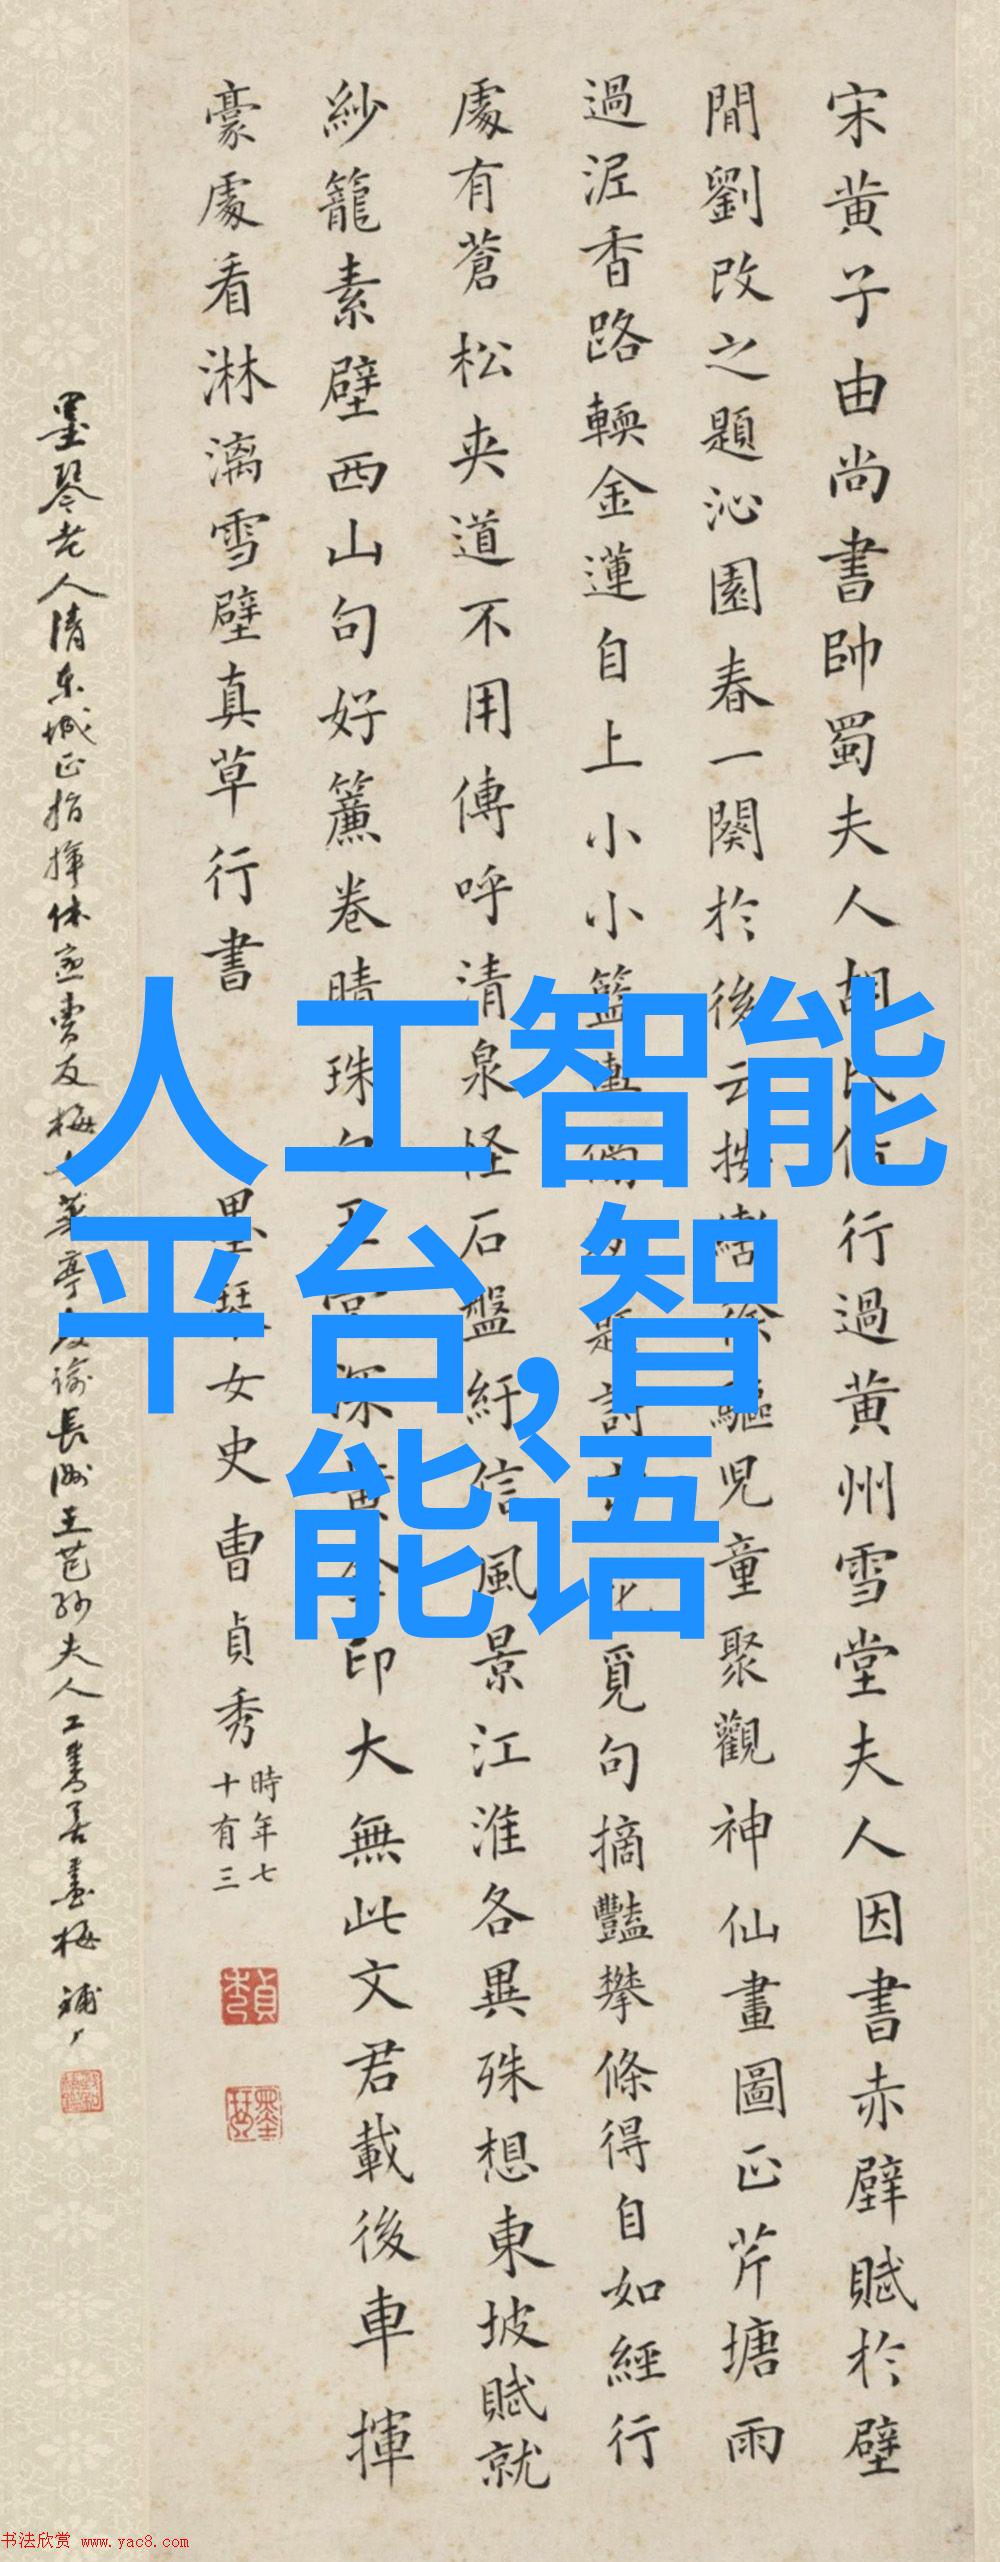 宋黄子由尚書帥蜀夫人胡氏偕行過黄州雪堂夫人因書赤壁賦於壁
間劉改之題沁園春一闋於後云按轡徐驅児童聚觀神仙畫圖正芹塘雨
過泥香路輭金蓮自上小小籃輿題詩覓句摘豔攀條得自如經行
處有蒼松夾道不用傳呼清泉怪石盤紆信風景江淮各異殊想東坡賦就
紗籠素壁西山句好簾卷晴珠白玉宮深黄金印大無此文君載後車揮
豪處看淋漓雪壁真草行書
墨琴女史曹貞秀
時年七
十有三
墨琴老人清東城正指揮休寧曹友梅女長洲王芑孫夫人工書善畫梅
人工智能
平台,智
能语
书法欣赏 www.yac8.com